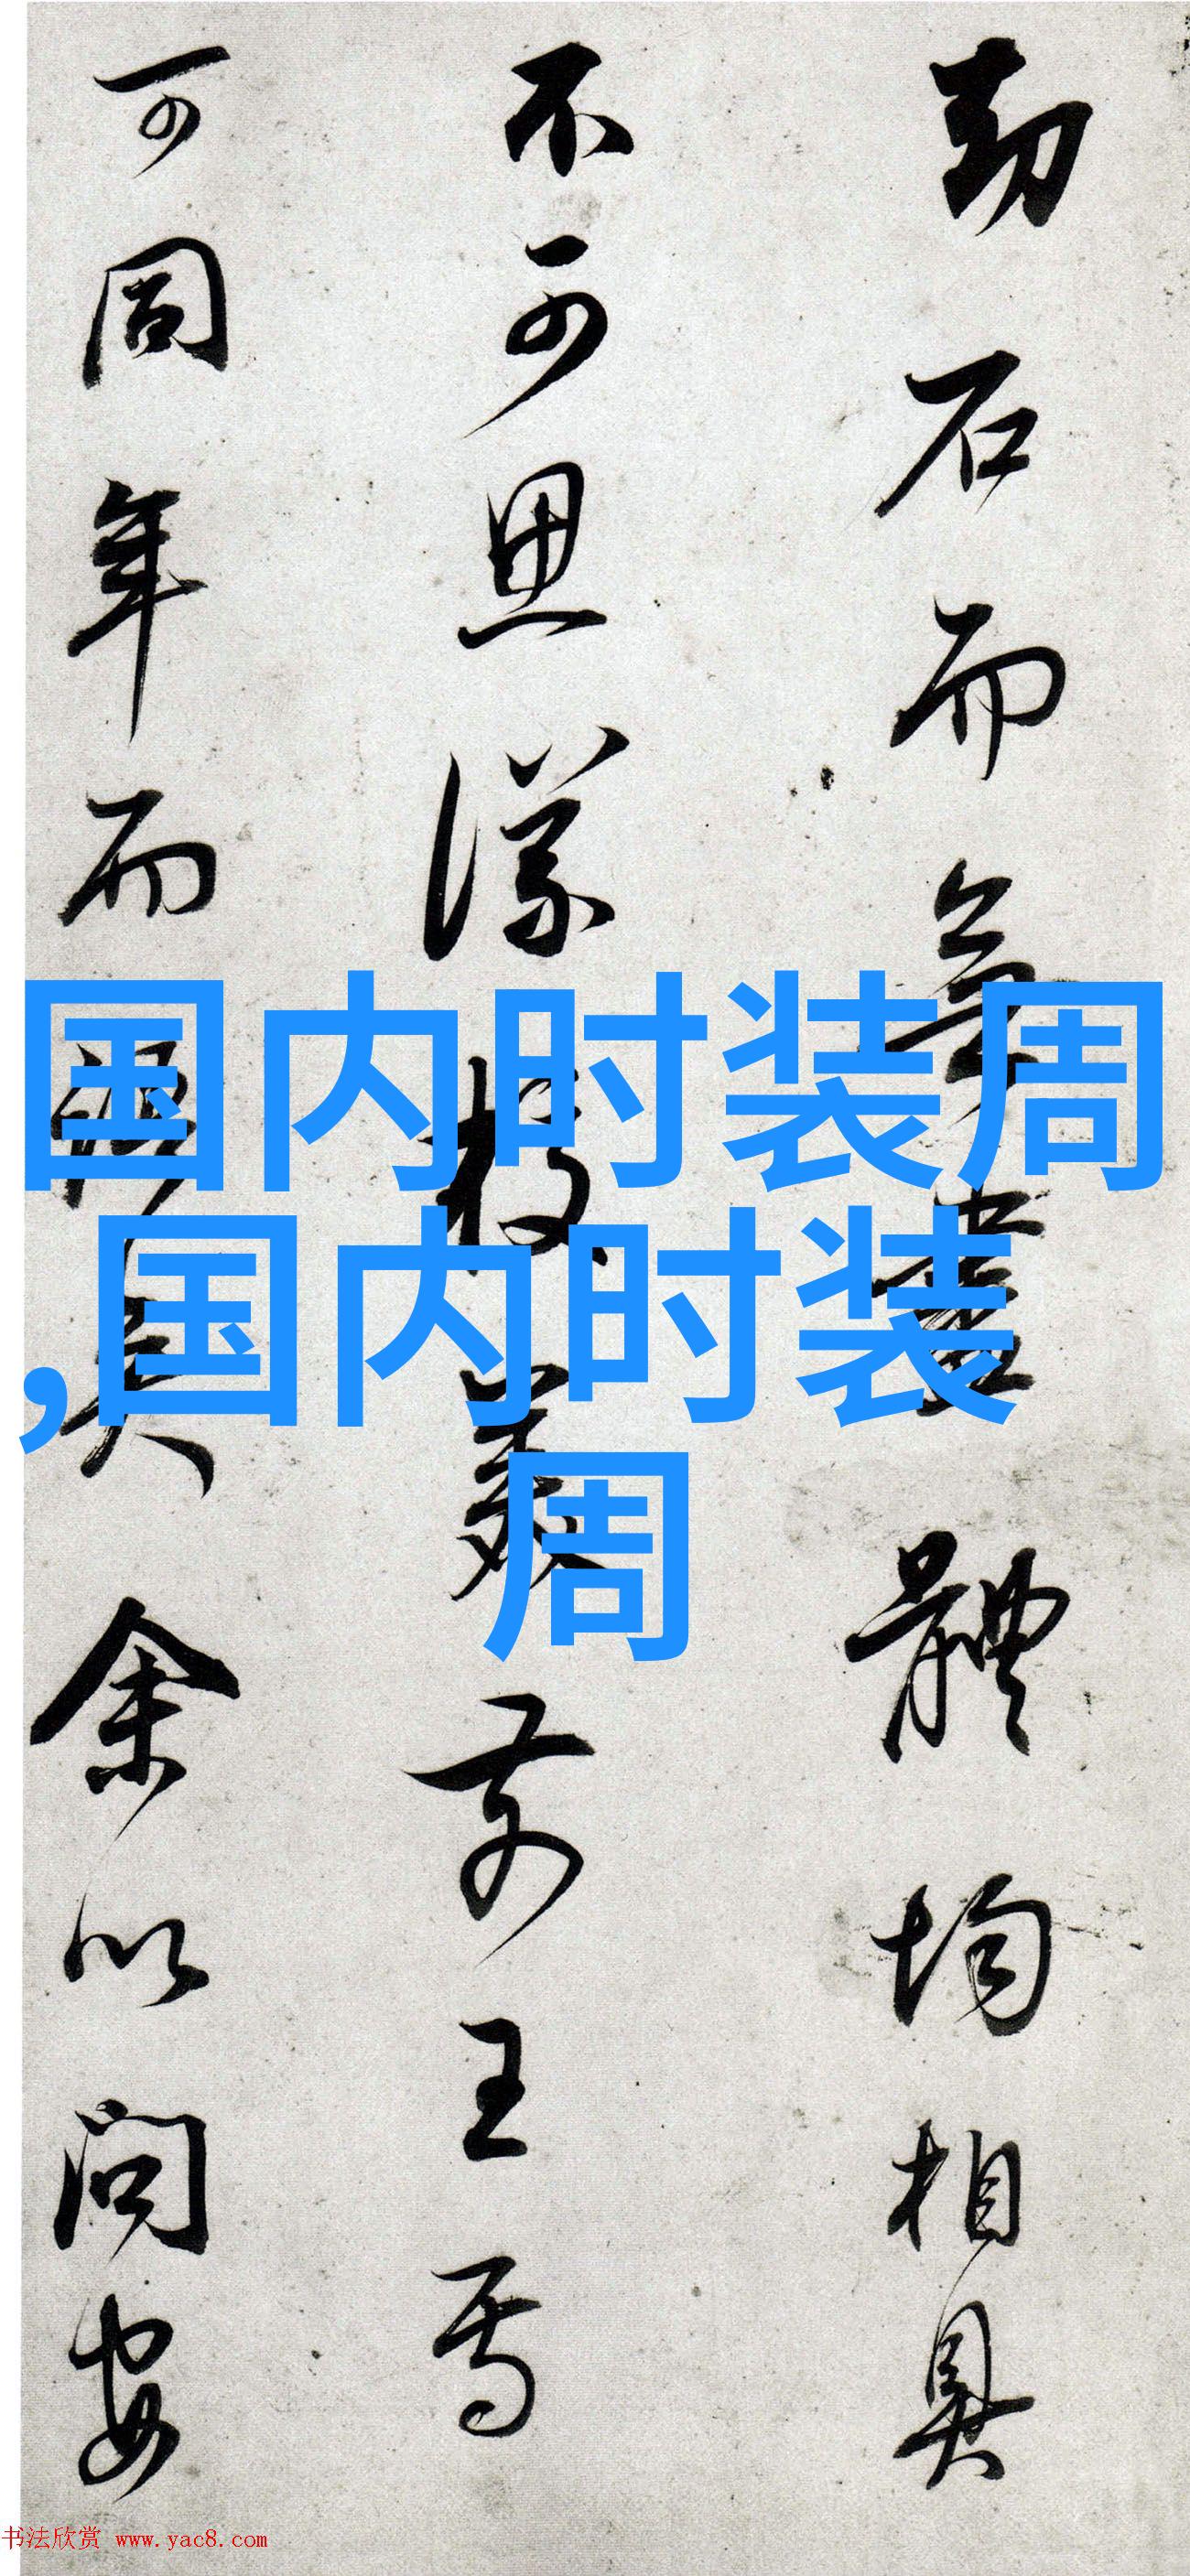 劫石而無盡體均相具
不可思議校豪前王焉
可同年而語矣余以问安
国内时装周
,国内时装
周
书法欣赏 www.yac8.com